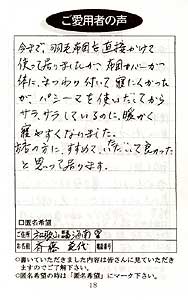 ご愛用者の声
今まで、羽毛布団を直接かけて
使って居りましたが、布団カバーが
体に、まつわり付いて寝にくかった
が、パシーマを使いだしてから
サラ、サラしているのに、暖かく
寝やすくなりました。
方に、すすめて、いただいて良かった
と思って居ります。
□匿名希望
ご住所 和歌山県海南市
お名前 斉藤
◎書いていただきました内容は皆さんに見ていただき
ますのでご了解下さい。
◎匿名希望の時は「匿名希望」にマーク下さい。
18